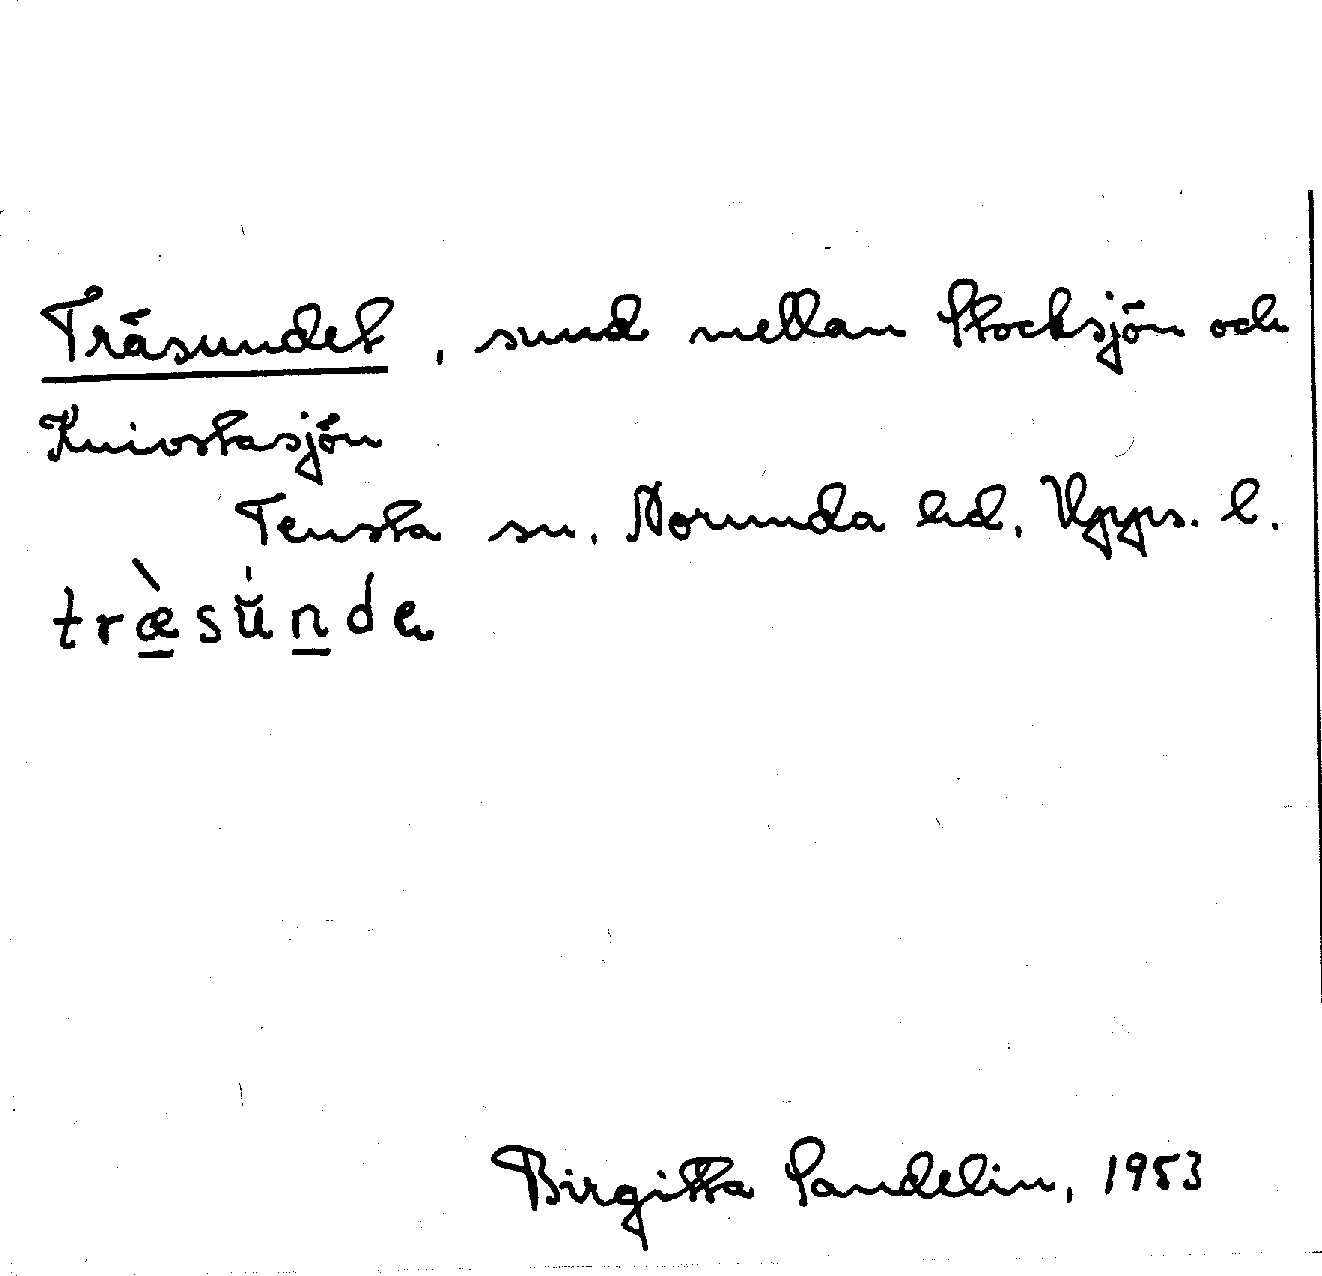 Träsundet, sund mellan Stocksjön och
Knivstasjön
Tensta sn. Norunda hd. Upps. l.
træ̱̀sŭ̍n̲de
Birgitta Sandelin, 1953